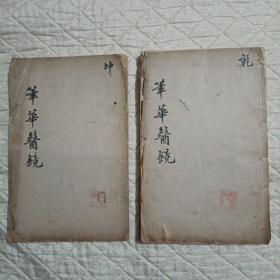 乾
筆華醫鏡
坤
筆華醫鏡